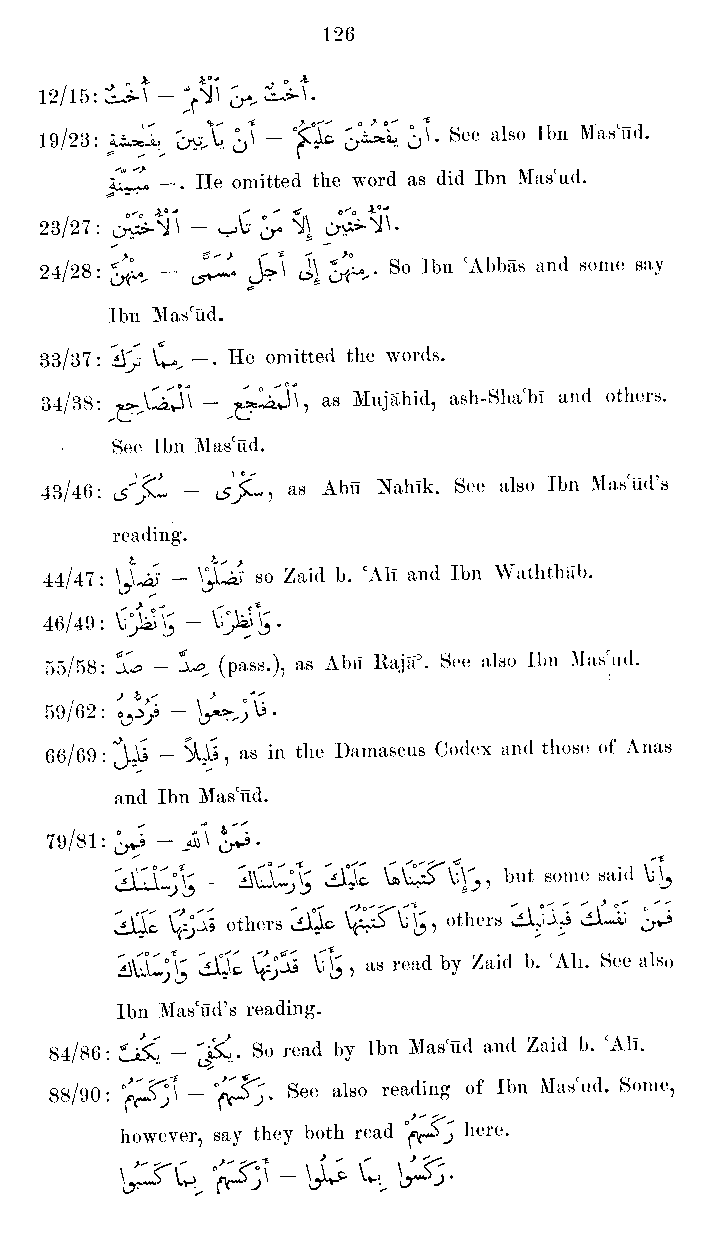 126
12/15: أُخْتٌ — أُخْتٌ مِنَ ٱلْأُمِّ.
19/23: أَنْ يَأْتِينَ بِفَٰحِشَةٍ — أَنْ يَفْحُشْنَ عَلَيْكُمْ. See also Ibn Masʿūd.
مُبَيِّنَةٍ —. He omitted the word as did Ibn Masʿud.
23/27: ٱلْأُخْتَيْنِ — ٱلْأُخْتَيْنِ إِلَّا مَنْ تَابَ.
24/28: مِنْهُنَّ — مِنْهُنَّ إِلَى أَجَلٍ مُسَمًّى. So Ibn ʿAbbās and some say
Ibn Masʿūd.
33/37: مِمَّا تَرَكَ —. He omitted the words.
34/38: ٱلْمَضَاجِعِ — ٱلْمَضْجَعِ, as Mujāhid, ash-Shaʿbī and others.
See Ibn Masʿūd.
43/46: سُكَٰرَى — سَكْرَى, as Abū Nahīk. See also Ibn Masʿūd's
reading.
44/47: تَضِلُّوا — تُضَلُّوْا so Zaid b. ʿAlī and Ibn Waththāb.
46/49: وَٱنْظُرْنَا — وَأَنْظِرْنَا.
55/58: صَدَّ — صِدَّ (pass.), as Abū Rajāʾ. See also Ibn Masʿud.
59/62: فَرُدُّوهُ — فَٱرْجِعُوا.
66/69: قَلِيلٌ — قَلِيلاً, as in the Damascus Codex and those of Anas
and Ibn Masʿūd.
79/81: فَمِنْ — فَمَنُّ ٱللهِ.
وَأَرْسَلْنَٰكَ - وَإِنَّا كَتَبْنَاهَا عَلَيْكَ وَأَرْسَلْنَاكَ, but some said وَأَنَا
قَدَّرْتُهَا عَلَيْكَ others وَأَنَا كَتَبْتُهَا عَلَيْكَ, others فَمِنْ نَفْسِكَ فَبِذَنْبِكَ
وَأَنَا قَدَّرْتُهَا عَلَيْكَ وَأَرْسَلْنَاكَ, as read by Zaid b. ʿAlī. See also
Ibn Masʿūd's reading.
84/86: يَكُفَّ — يَكْفِيَ. So read by Ibn Masʿūd and Zaid b. ʿAlī.
88/90: أَرْكَسَهُمْ — رَكَّسَهُمْ. See also reading of Ibn Masʿud. Some,
however, say they both read رَكَسَهُمْ here.
أَرْكَسَهُمْ بِمَا كَسَبُوا — رُكِسُوا بِمَا عَمِلُوا.